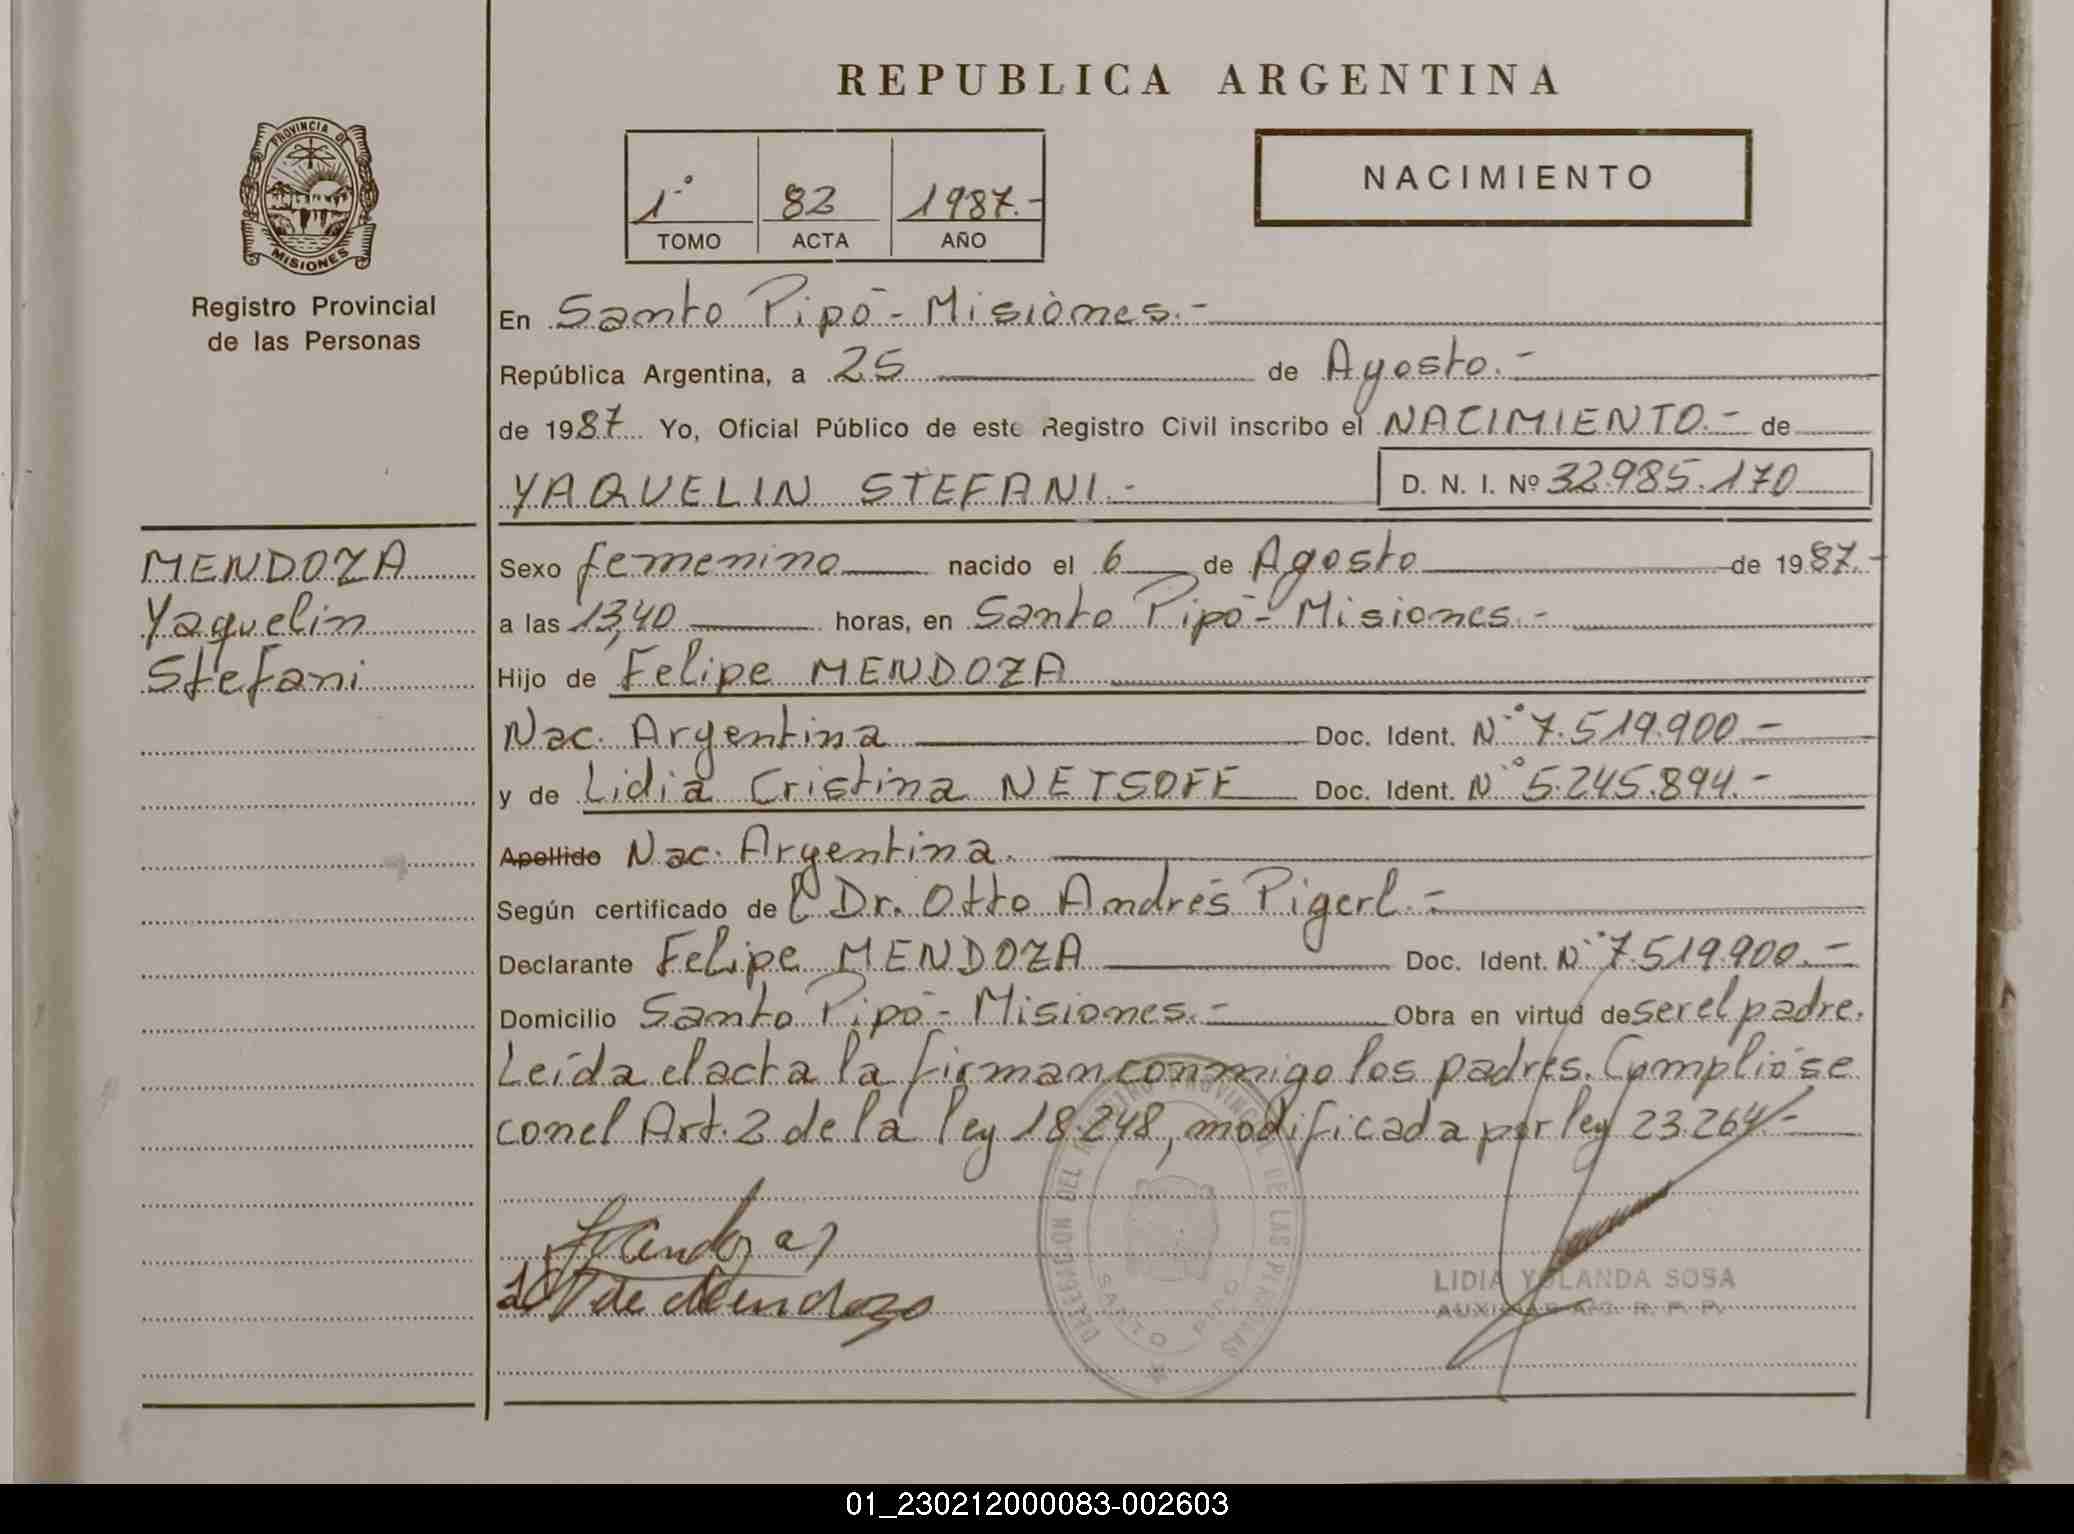 REPUBLICA ARGENTINA
PROVINCIA DE
MISIONES
Registro Provincial
de las Personas
1º 82 1987.-
TOMO ACTA AÑO
NACIMIENTO
En Santo Pipó - Misiones.-
República Argentina, a 25 de Agosto.-
de 1987. Yo, Oficial Público de este Registro Civil inscribo el NACIMIENTO.- de
YAQUELIN STEFANI.- D. N. I. Nº 32.985.170
MENDOZA
Yaquelin
Stefani
Sexo femenino nacido el 6 de Agosto de 1987.-
a las 13,40 horas, en Santo Pipó - Misiones.-
Hijo de Felipe MENDOZA
Nac. Argentina Doc. Ident. Nº 7.519.900 -
y de Lidia Cristina NETSOFF Doc. Ident. Nº 5.245.894.-
Apellido Nac. Argentina.
Según certificado del Dr. Otto Andrés Pigerl.-
Declarante Felipe MENDOZA Doc. Ident. Nº 7.519.900.-
Domicilio Santo Pipó - Misiones.- Obra en virtud de ser el padre.
Leída el acta la firman conmigo los padres. Cumplióse
con el Art. 2 de la ley 18.248, modificada por ley 23.264/-
de Mendoza
DELEGACION DEL REGISTRO PROVINCIAL DE LAS PERSONAS
SANTO PIPO
LIDIA YOLANDA SOSA
01_230212000083-002603